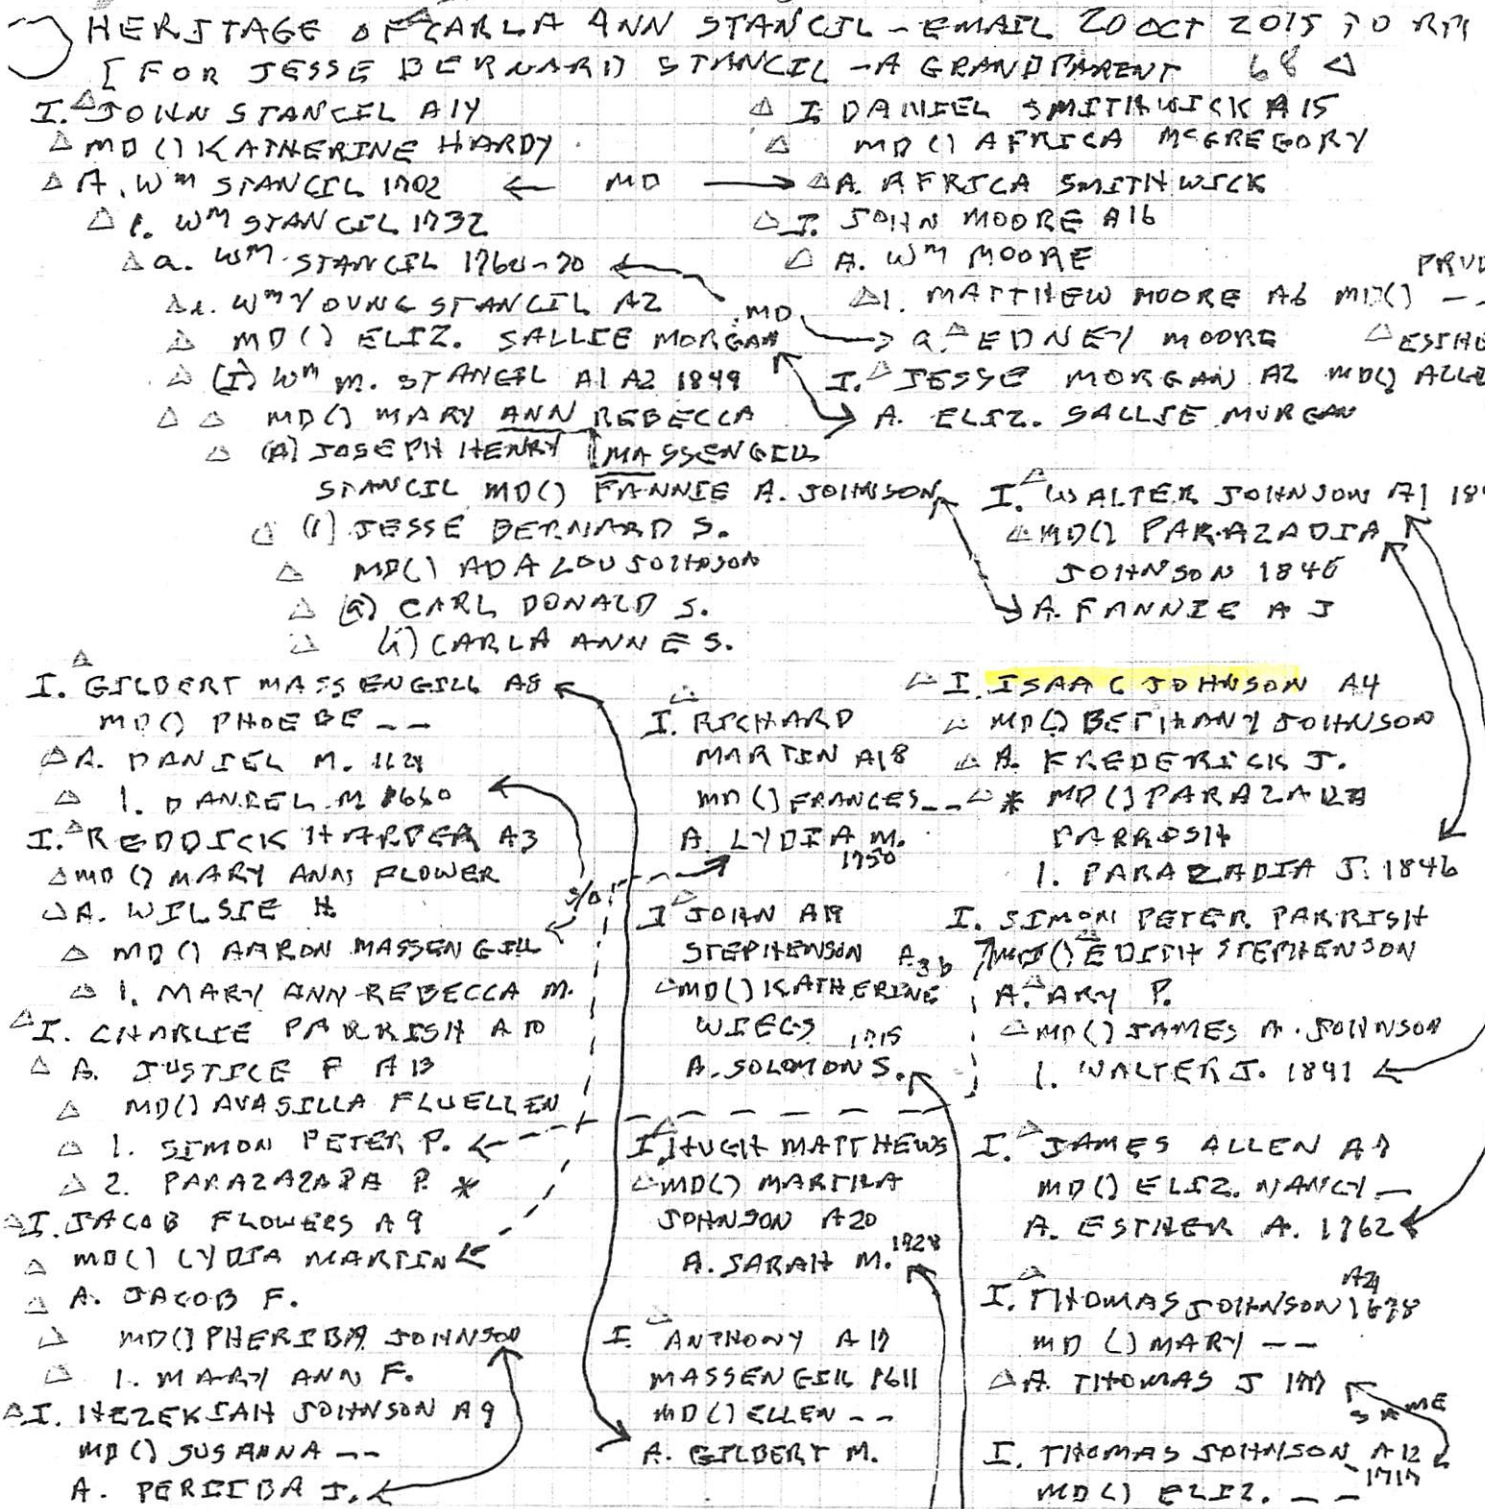 HERITAGE OF CARLA ANN STANCIL - EMAIL 20 OCT 2015 TO
[FOR JESSE BERNARD STANCIL - A GRANDPARENT 68
I. JOHN STANCIL A14
MD () KATHERINE HARDY
A. Wm STANCIL 1702 ← MD →
1. Wm STANCIL 1732
a. Wm STANCIL 1760-70
i. Wm YOUNG STANCIL A2
MD () ELIZ. SALLIE MORGAN
(I) Wm M. STANCIL A1 A2 1849
MD () MARY ANN REBECCA
MASSENGILL
(A) JOSEPH HENRY
STANCIL MD () FANNIE A. JOHNSON
(1) JESSE BERNARD S.
MD () ADA LOU JOHNSON
(a) CARL DONALD S.
(i) CARLA ANNE S.
I. DANIEL SMITHWICK A15
MD () AFRICA McGREGORY
A. AFRICA SMITHWICK
I. JOHN MOORE A16
A. Wm MOORE
1. MATTHEW MOORE A6 MD () --
MD
a. EDNEY MOORE
I. JESSE MORGAN A2 MD ()
A. ELIZ. SALLIE MORGAN
I. WALTER JOHNSON A1
MD () PARAZADIA
JOHNSON 1846
A. FANNIE A J
I. GILBERT MASSENGILL A8
MD () PHOEBE --
A. DANIEL M.
1. DANIEL M 1660
I. REDDICK HARPER A3
MD () MARY ANN FLOWER
A. WILSIE H.
MD () AARON MASSENGILL
1. MARY ANN REBECCA M.
S/O
I. CHARLIE PARRISH A10
A. JUSTICE P A13
MD () AVASILLA FLUELLEN
1. SIMON PETER P.
2. PARAZAZADA P. *
I. JACOB FLOWERS A9
MD () LYDIA MARTIN
A. JACOB F.
MD () PHERIBA JOHNSON
1. MARY ANN F.
I. HEZEKIAH JOHNSON A9
MD () SUSANNA --
A. PERIIBA J.
I. RICHARD
MARTIN A18
MD () FRANCES --
A. LYDIA M.
1750
I. JOHN A19
STEPHENSON A3b
MD () KATHERINE
A. SOLOMON S. 1715
I. HUGH MATTHEWS
MD () MARTHA
JOHNSON A20
A. SARAH M. 1728
I. ANTHONY A17
MASSENGILL 1611
MD () ELLEN --
A. GILBERT M.
I. ISAAC JOHNSON A4
MD () BETHANY JOHNSON
A. FREDERICK J.
* MD () PARAZADA
PARRISH
1. PARAZADIA J. 1846
I. SIMON PETER PARRISH
MD () EDITH STEPHENSON
A. ARY P.
MD () JAMES A. JOHNSON
1. WALTER J. 1841
I. JAMES ALLEN A7
MD () ELIZ. NANCY --
A. ESTHER A. 1762
I. THOMAS JOHNSON A21 1678
MD () MARY --
A. THOMAS J 1717
SAME
I. THOMAS JOHNSON A12
1717
MD () ELIZ. --